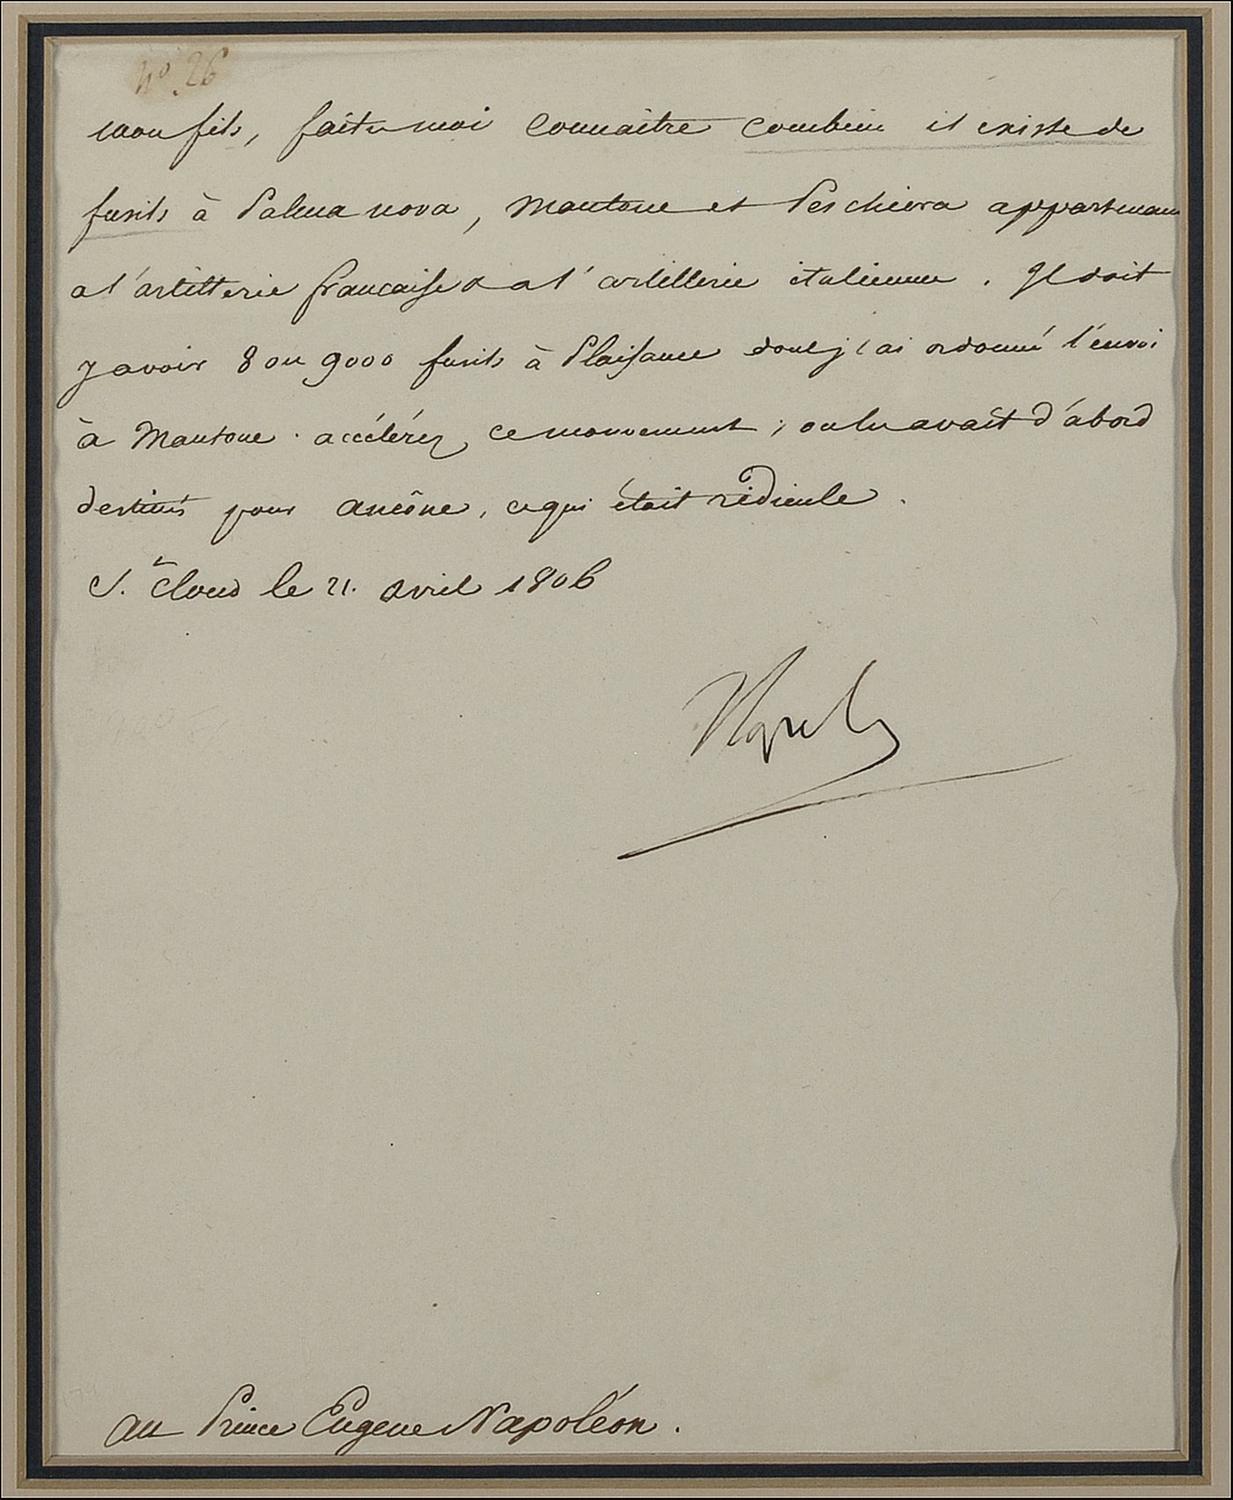 N° 26
mon fils, faites moi connaitre combien il existe de
fusils à Palma nova, Mantoue et Peschiera appartenant
a l'artillerie francaise & a l'artillerie italienne. Il doit
y avoir 8 ou 9000 fusils à Plaisance dont j'ai ordonné l'envoi
à Mantoue. accélérez ce mouvement; on les avait d'abord
destinés pour ancône, ce qui était ridicule.
S.t Cloud le 21. avril 1806
Napol
au Prince Eugene Napoléon.